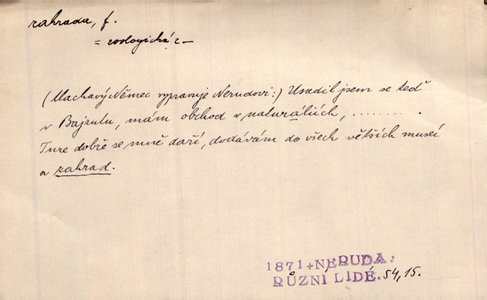 zahrada, f.
= zoologická z –
(Vlachavý Němec vypravuje Nerudovi:) Usadil jsem se teď
v Bajrutu, mám obchod v naturáliích, .........
Tuze dobře se mně daří, dodávám do všech větších museí
a zahrad.
1871 + NERUDA,
RŮZNÍ LIDÉ. 54, 15.